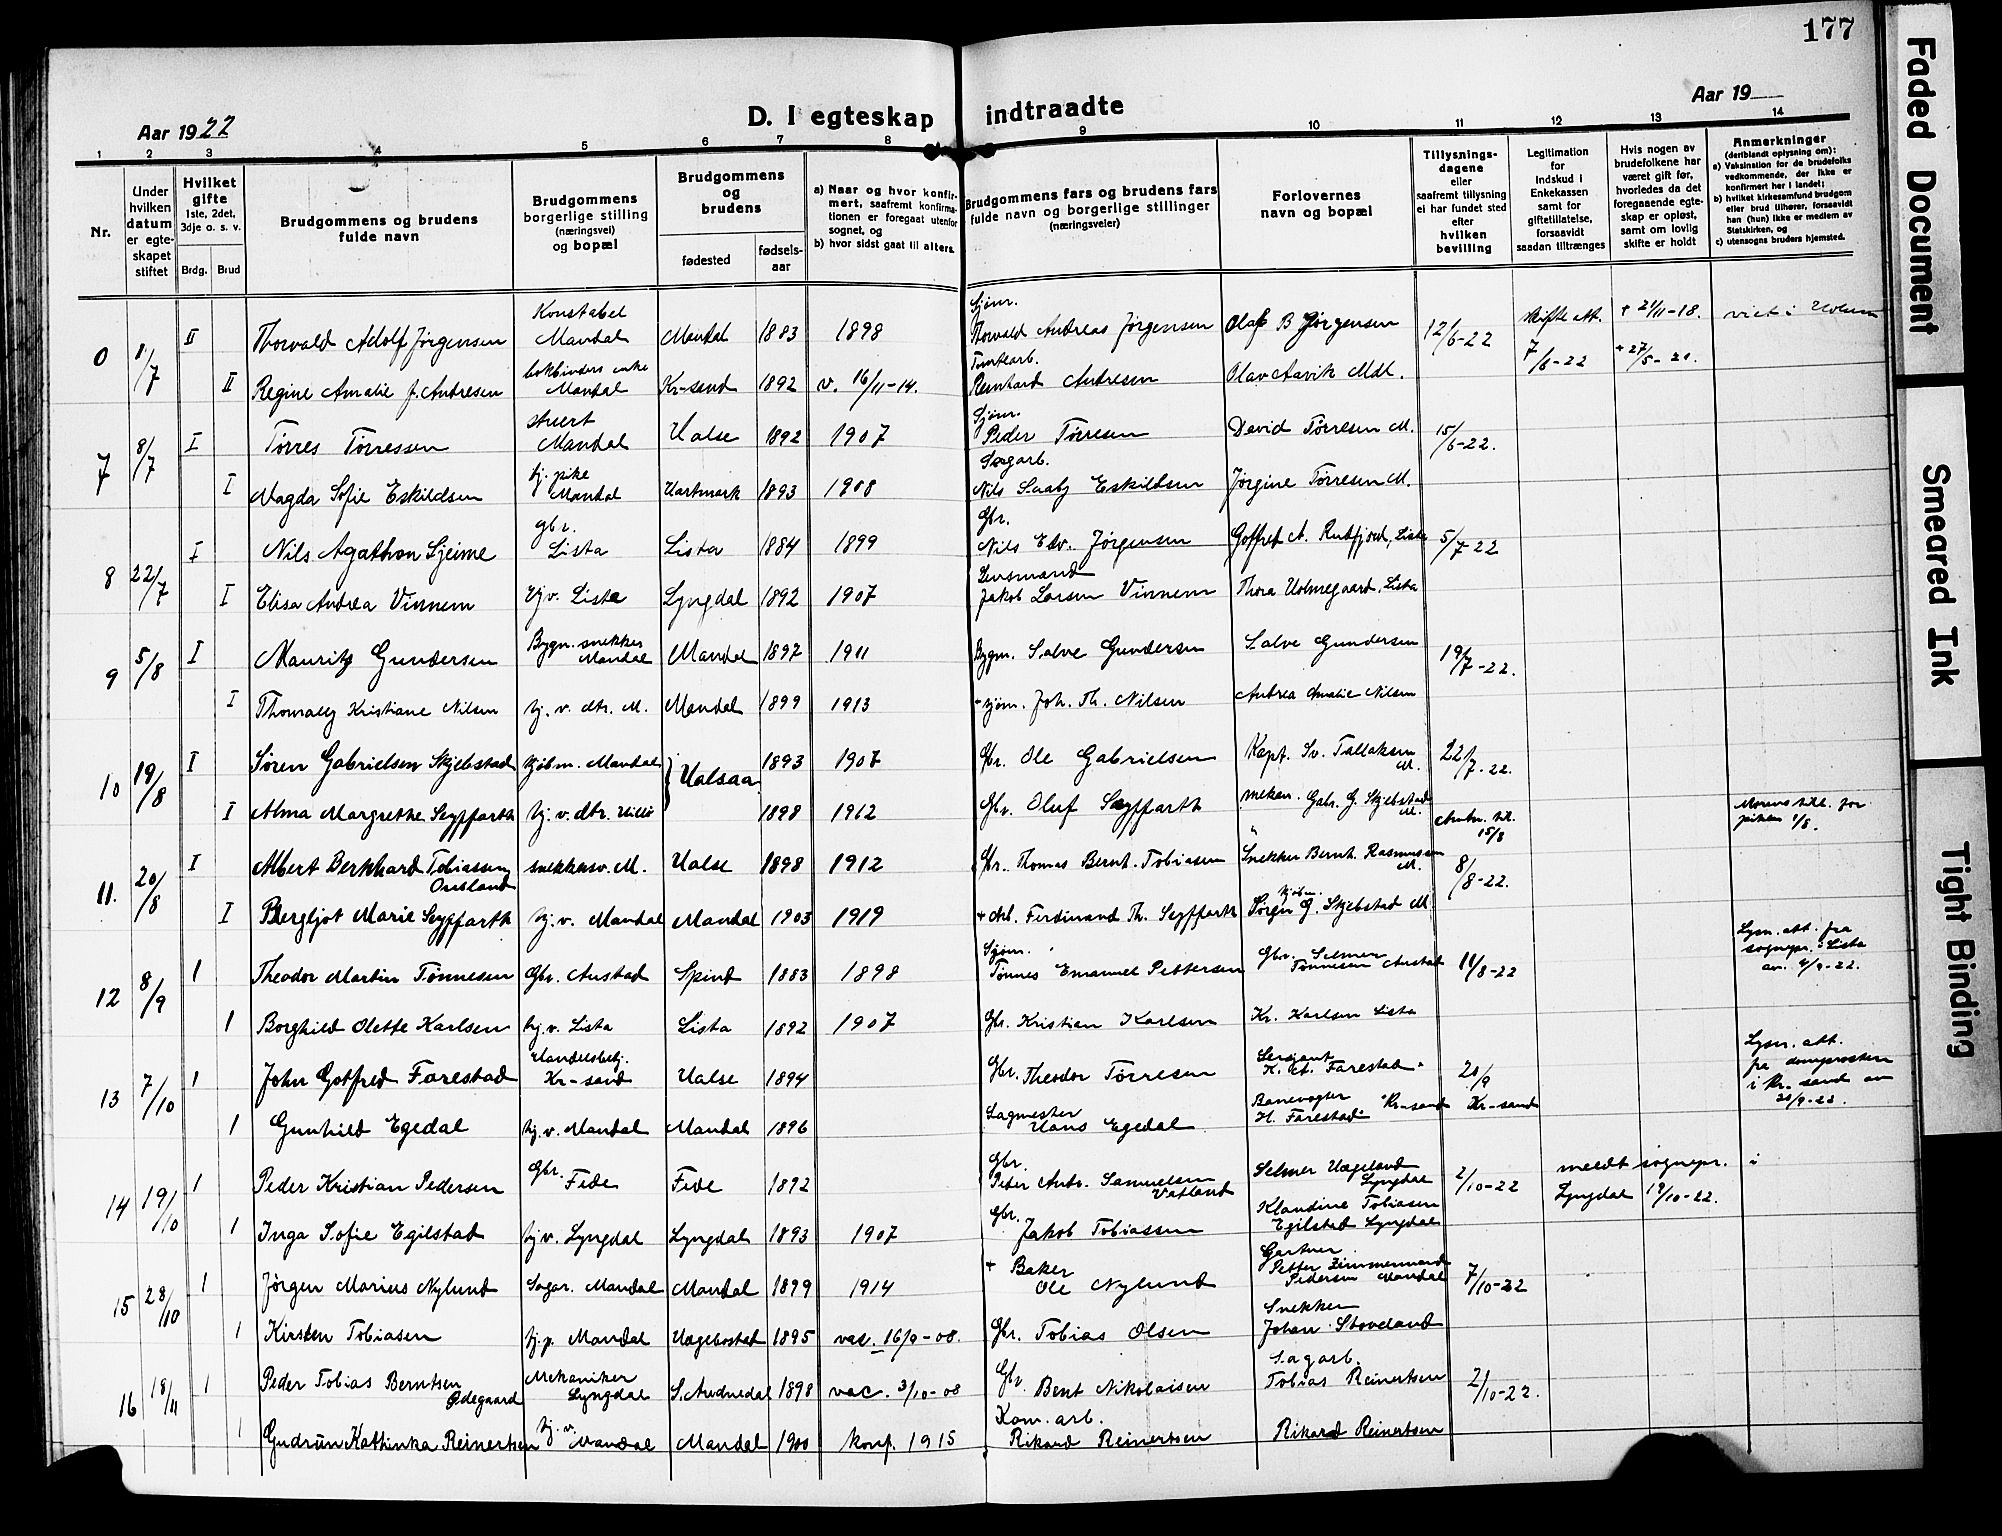 177
Aar 1922
D. I egteskap indtraadte
Aar 19
1 2 3 4 5 6 7 8 9 10 11 12 13 14
Nr.
Under hvilken datum er egteskapet stiftet
Hvilket gifte 1ste, 2det, 3dje o. s. v.
Brdg. Brud
Brudgommens og brudens fulde navn
Brudgommens borgerlige stilling (næringsvei) og bopæl
Brudgommens og brudens
fødested fødsels-aar
a) Naar og hvor konfirmert, saafremt konfirmationen er foregaat utenfor sognet, og
b) hvor sidst gaat til alters.
Brudgommens fars og brudens fars fulde navn og borgerlige stillinger (næringsveier)
Forlovernes navn og bopæl
Tillysnings-dagene eller saafremt tillysning ei har fundet sted efter hvilken bevilling
Legitimation for indskud i Enkekassen samt for giftetillatelse, forsaavidt saadan tiltrænges
Hvis nogen av brudefolkene har været gift før, hvorledes da det foregaaende egteskap er opløst, samt om lovlig skifte er holdt
Anmerkninger (deriblandt oplysning om):
a) Vaksination for de brudefolks vedkommende, der ikke er konfirmert her i landet;
b) hvilket kirkesamfund brudgom eller brud tilhører, forsaavidt han (hun) ikke er medlem av Statskirken, og
c) utensogns bruders hjemsted.
0 1/7 II Thorvald Adolf Jørgensen Konstabel Mandal Mandal 1883 1898 Sjøm. Thorvald Andreas Jørgensen Olaf B Jørgensen 12/6-22 skifte att. + 21/11-18. viet i Holum
II Regine Amalie f. Andresen bokbinders enke Mandal Kr-sand 1892 v. 16/11-14. Tomtearb. Reinhard Andresen Olav Aavik Mdl. 7/6-22 + 27/5-20.
7 8/7 I Tørres Tørressen Mandal Halse 1892 1907 Sjøm. Peder Tørresen David Tørresen M. 15/6-22.
I Magda Sofie Eskildsen hj. pike Mandal Hartmark 1893 1908 Sagarb. Nils Saaby Eskildsen Jørgine Tørresen M.
8 22/7 I Nils Agathon Sjeime gbr. Lista Lista 1884 1899 Gbr. Nils Edv. Jørgensen Gotfred A. Rudfjord, Lista 5/7-22
I Elisa Andrea Vinnem hj v. Lista Lyngdal 1892 1907 Lensmand Jakob Larsen Vinnem Thora Holmegaard, Lista
9 5/8 I Mauritz Gundersen Bygn. snekker Mandal Mandal 1897 1911 Bygm. Salve Gundersen Salve Gundersen 19/7-22.
I Thomally Kristiane Nilsen hj. v. dtr. M. Mandal 1899 1913 sjøm. Joh. Th. Nilsen Andrea Amalie Nilsen
10 19/8 I Søren Gabrielsen Skjebstad kjøbm. Mandal } Halsaa 1893 1907 Gbr. Ole Gabrielsen Kapt. Sv. Tallaksen M. 22/7-22.
I Alma Margrethe Seyffarth hj. v. dtr. Hille 1898 1912 Gbr. Oluf Seyffarth mekan. Gabr. G. Skjebstad M. 15/8 Morens till. for piken 1/8.
11. 20/8 I Albert Berkhard Tobiassen Ousland snekkersv. M. Halse 1898 1912 Gbr. Thomas Bernt. Tobiasen Snekker Bernh. Rasmussen M. 8/8-22.
I Bergljot Marie Seyffarth hj. v. Mandal Mandal 1903 1919 + Arb. Ferdinand Th. Seyffarth Kjøbm. Sørgen G. Skjebstad M.
12 8/9 1 Theodor Martin Tønnesen Gbr. Austad Spind 1883 1898 Sjøm. Tønnes Emanuel Pettersen Gbr. Selmer Tønnesen Austad 11/8-22 Lysn. att. fra sognepr. i Lista av. 4/9-22.
1 Borghild Olette Karlsen hj. v. Lista Lista 1892 1907 Gbr. Kristian Karlsen Kr. Karlsen Lista
13 7/10 1 John Gotfred Farestad Handelsbetj. Kr-sand Halse 1894 Gbr. Theodor Tørresen Sersjant K. A. Farestad 20/9 Kr-sand Lysn. att. fra domprosten i Kr. sand av 30/9-22.
1 Gunhild Egedal hj. v. Mandal Mandal 1896 Sagmester Hans Egedal Banevogter H. Farestad Kr-sand
14 19/10 1 Peder Kristian Pedersen Gbr. Fede Fede 1892 Gbr. Peder Andr. Samuelsen Vatland Selmer Hægeland Lyngdal 2/10-22 meldt sognepr. i Lyngdal 19/10-22.
1 Inga Sofie Egilstad hj v. Lyngdal Lyngdal 1893 1907 Gbr. Jakob Tobiassen Klandine Tobiasen Egilstad Lyngdal
15 28/10 1 Jørgen Marius Nylund Sagar. Mandal Mandal 1899 1914 + Baker Ole Nylund Gartner Petter Zimmermand Pedersen Mandal 7/10-22
1 Kirsten Tobiasen hj. p. Mandal Hægebostad 1895 vac. 16/9-08. Gbr. Tobias Olsen Snekker Johan Stoveland
16 18/11 1 Peder Tobias Berntsen Ødegaard Mekaniker Lyngdal S. Audnedal 1898 vac. 3/10-08 Gbr Bent Nikolaisen Sagarb. Tobias Reinertsen 2/10-22.
1 Gudrun Kathinka Reinertsen hj. v. Mandal Mandal 1900 konf. 1915 Kom. arb. Rikard Reinertsen Rikard Reinertsen
Faded Document
Smeared Ink
Tight Binding